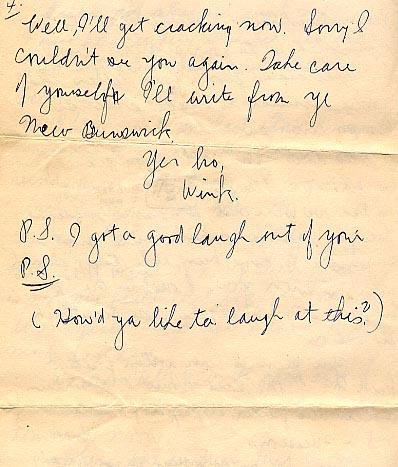 4.
Well, I'll get cracking now. Sorry I
couldn't see you again. Take care
of yourself I'll write from ye
New Brunswick.
Yer bro,
Wink.
P.S. I got a good laugh out of your
P.S.
( How'd ya like ta laugh at this? )